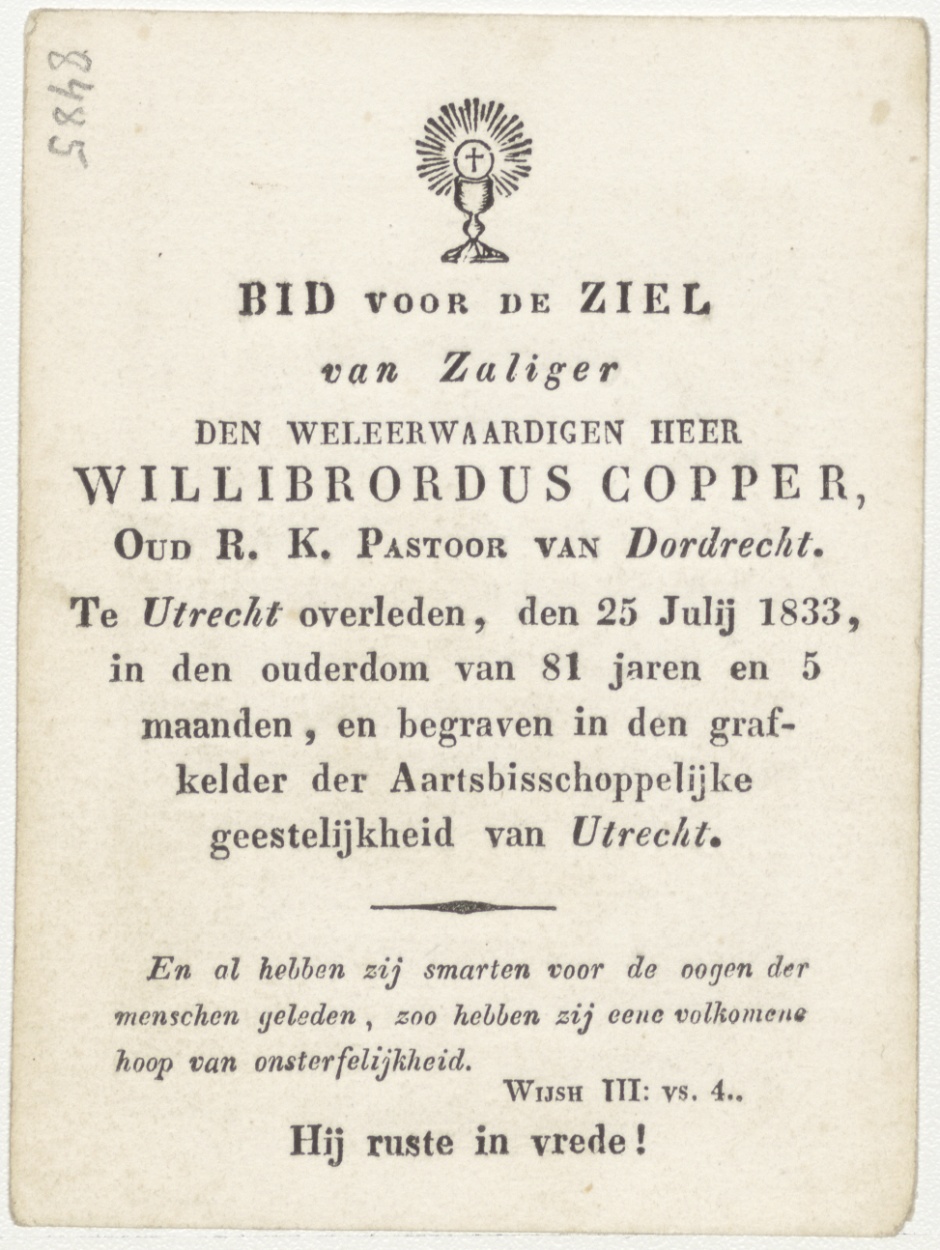 8485
BID VOOR DE ZIEL
van Zaliger
DEN WELEERWAARDIGEN HEER
WILLIBRORDUS COPPER,
OUD R. K. PASTOOR VAN Dordrecht.
Te Utrecht overleden, den 25 Julij 1833,
in den ouderdom van 81 jaren en 5
maanden, en begraven in den graf-
kelder der Aartsbisschoppelijke
geestelijkheid van Utrecht.
En al hebben zij smarten voor de oogen der
menschen geleden, zoo hebben zij eene volkomene
hoop van onsterfelijkheid.
WIJSH III: vs. 4..
Hij ruste in vrede!